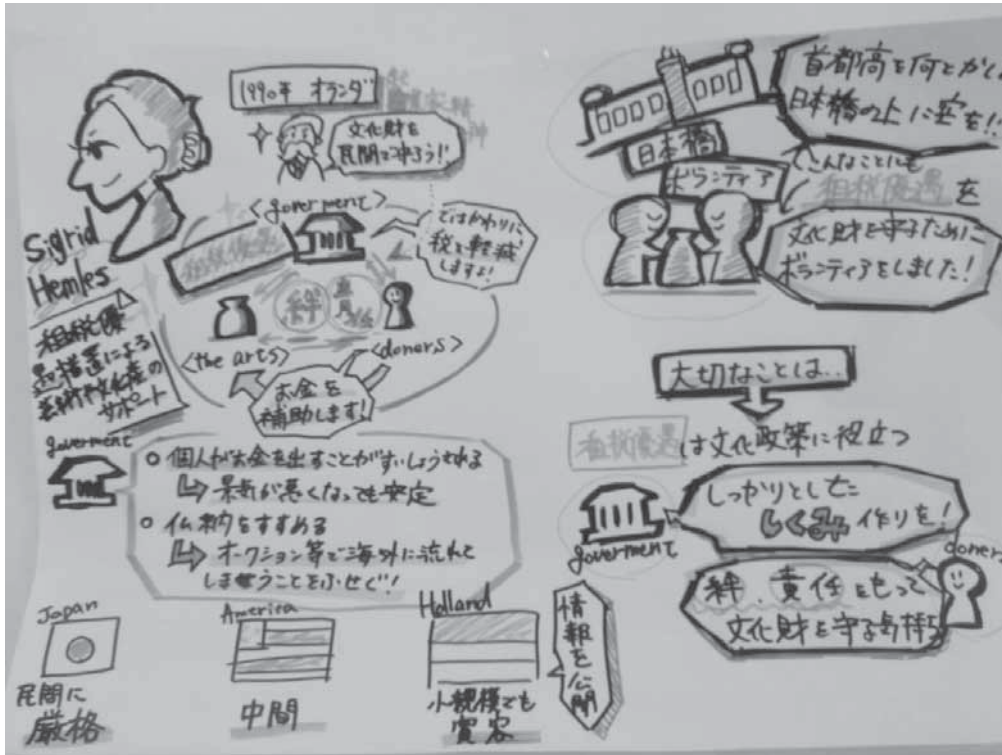 Sigrid
Hemles
租税優
遇措置による
芸術や文化産の
サポート
1990年 オランダ
文化財を
民間で守ろう!!
<goverment>
租税優遇
ではかわりに
税を軽減
しますよ!
絆
<the arts>
<doners>
お金を
補助します!
goverment
○ 個人がお金を出すことがすいしょうされる
↳ 景気が悪くなっても安定
○ 仏納をすすめる
↳ オークション等で海外に流れて
しまうことをふせぐ!
Japan
民間に
厳格
America
中間
Holland
小規模でも
寛容
情報を公開
首都高を何とかし
日本橋の上に空を!!
日本橋
ボランティア
こんなことにも
租税優遇を
文化財を守るために
ボランティアをしました!
大切なことは..
租税優遇は文化政策に役立つ
goverment
しっかりとした
しくみ作りを!
doner
絆、責任をもって
文化財を守る気持ち